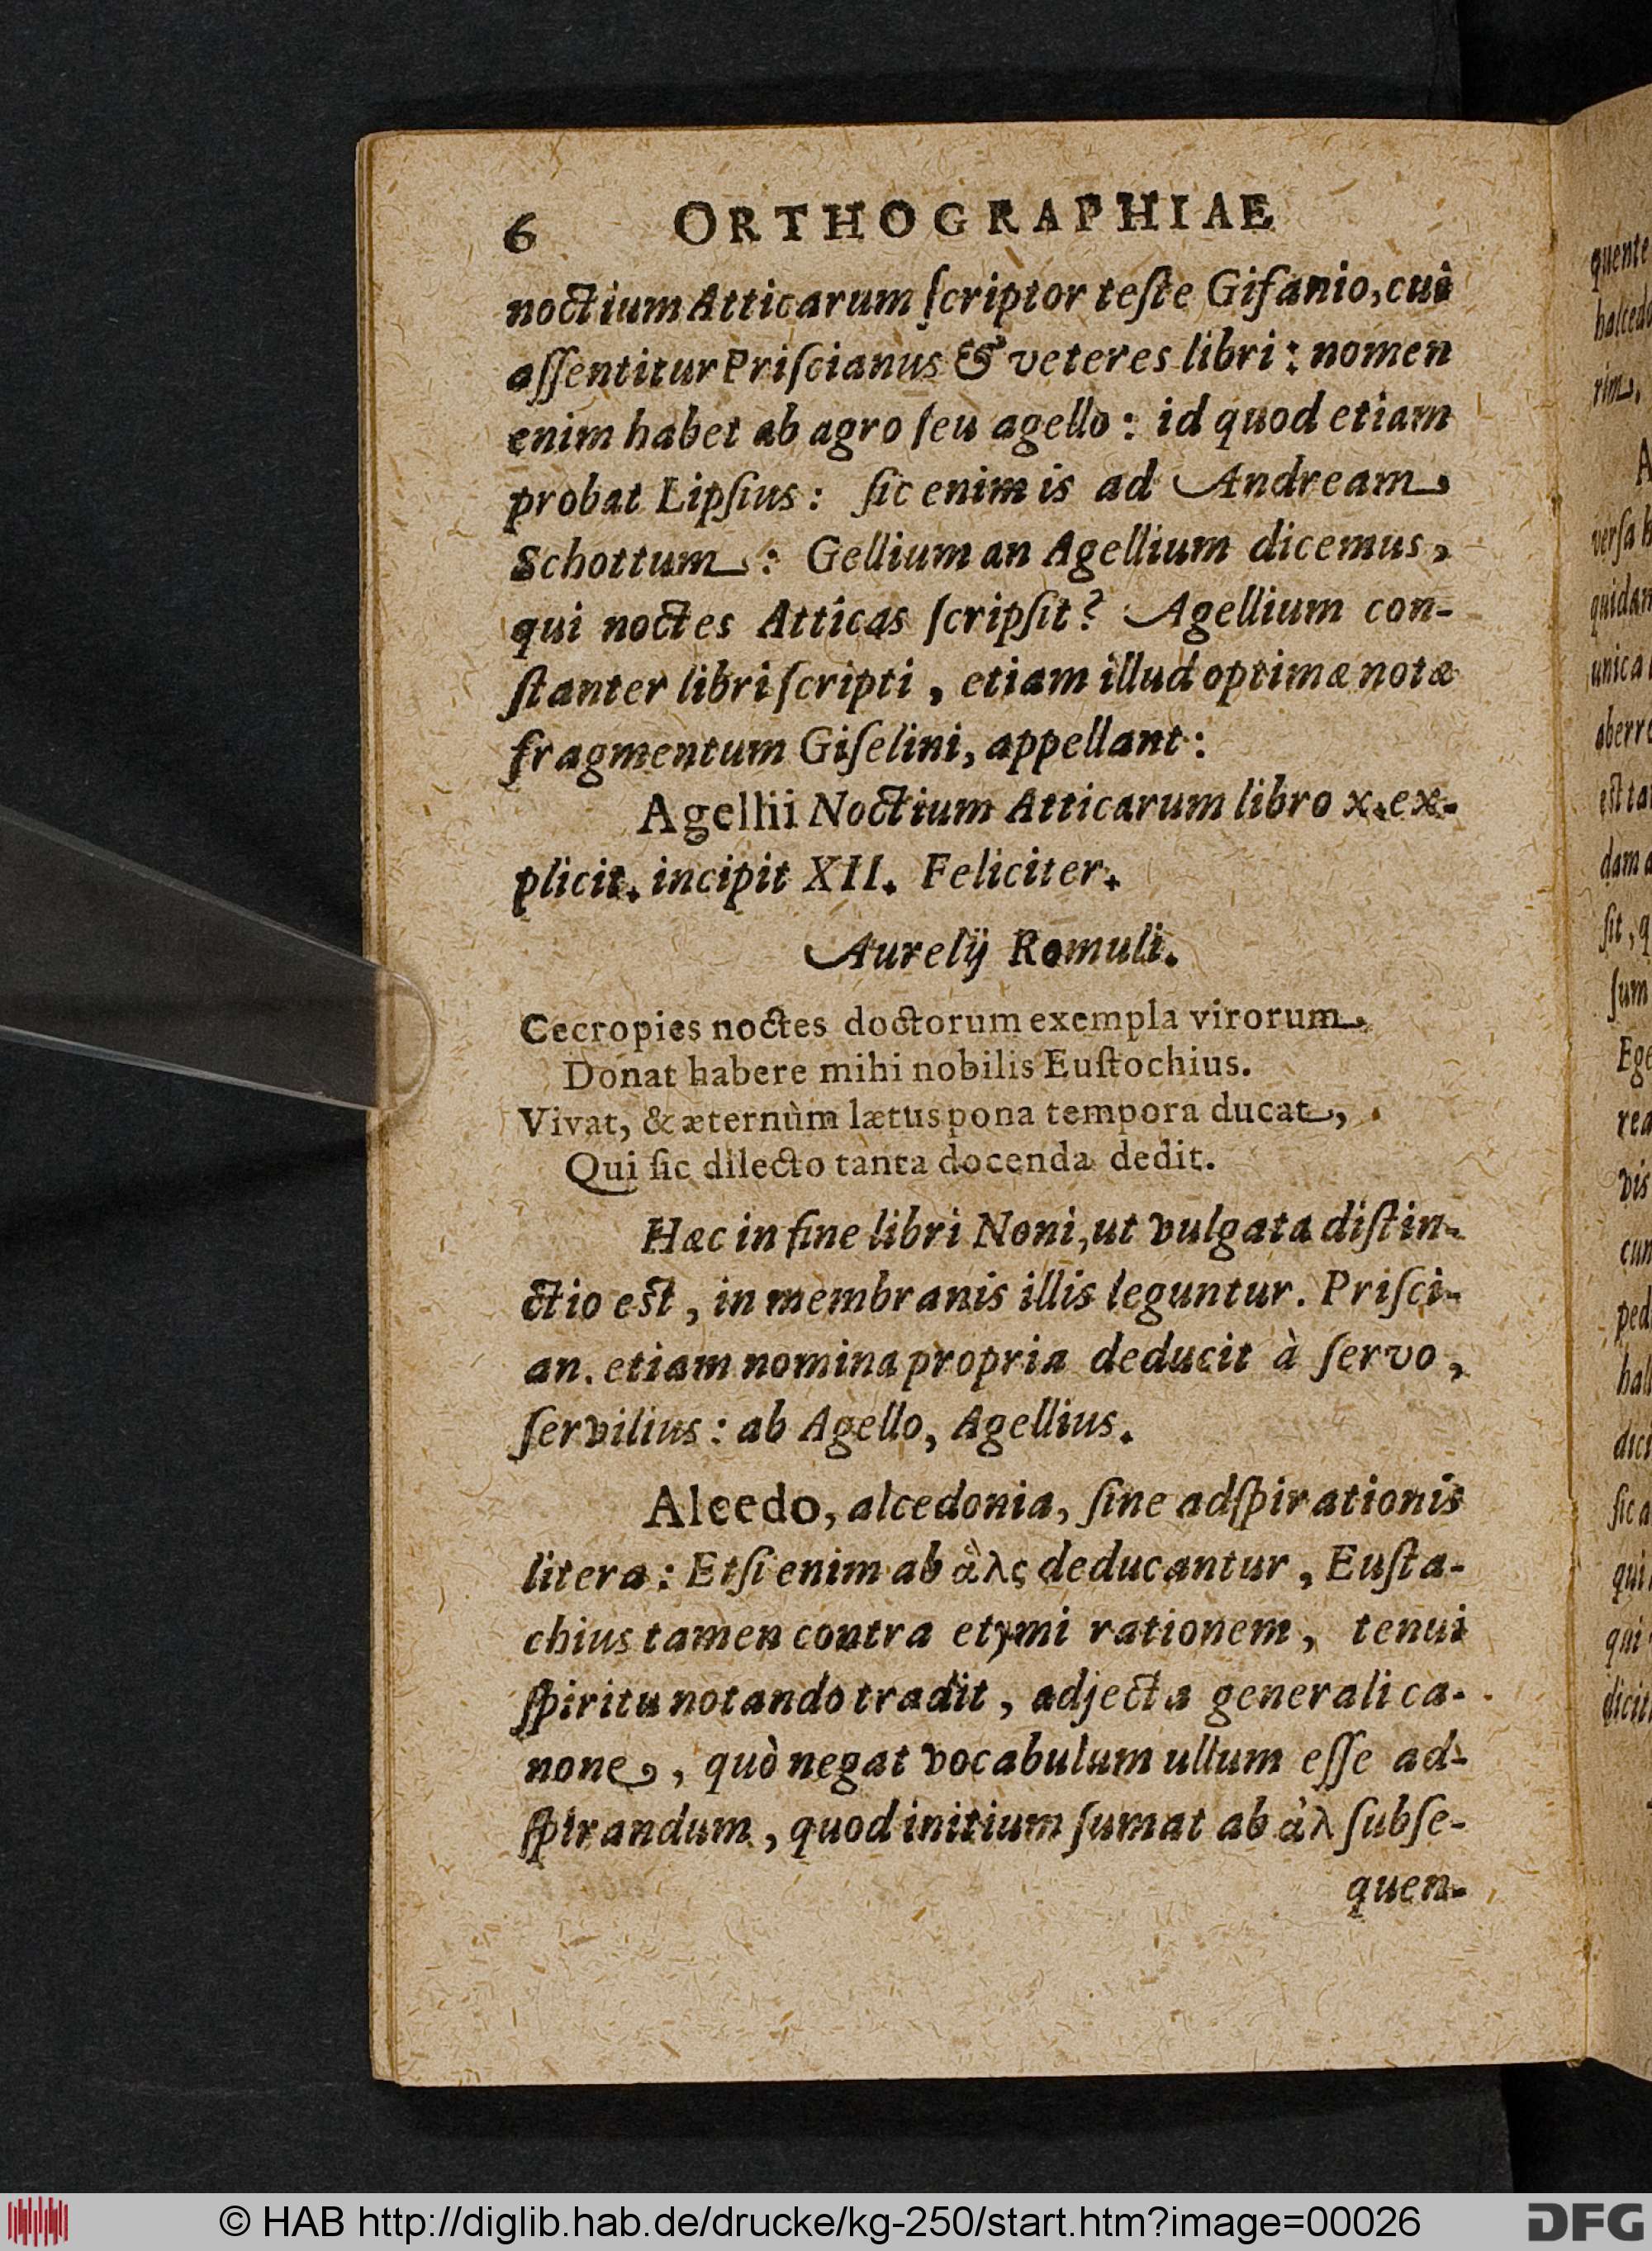 6 ORTHOGRAPHIAE
noctium Atticarum ſcriptor teſte Gifanio, cui
aſſentitur Priſcianus & veteres libri: nomen
enim habet ab agro ſeu agello: id quod etiam
probat Lipſius: ſic enim is ad Andream
Schottum: Gellium an Agellium dicemus,
qui noctes Atticas ſcripſit? Agellium con-
ſtanter libri ſcripti, etiam illud optimæ notæ
fragmentum Giſelini, appellant:
Agellii Noctium Atticarum libro x. ex-
plicit. incipit XII. Feliciter.
Aurelij Romuli.
Cecropies noctes doctorum exempla virorum
Donat habere mihi nobilis Euſtochius.
Vivat, & æternùm lætus pona tempora ducat,
Qui ſic dilecto tanta docenda dedit.
Hæc in fine libri Noni, ut vulgata diſtin-
ctio eſt, in membranis illis leguntur. Priſci-
an. etiam nomina propria deducit à ſervo,
ſervilius: ab Agello, Agellius.
Alcedo, alcedonia, ſine adſpirationis
litera: Etſi enim ab ἃλς deducantur, Euſta-
chius tamen contra etymi rationem, tenui
ſpiritu notando tradit, adjecta generali ca-
none, quò negat vocabulum ullum eſſe ad-
ſpirandum, quod initium ſumat ab ἀλ ſubſe-
quen-
quente
rim.
A
© HAB http://diglib.hab.de/drucke/kg-250/start.htm?image=00026
DFG